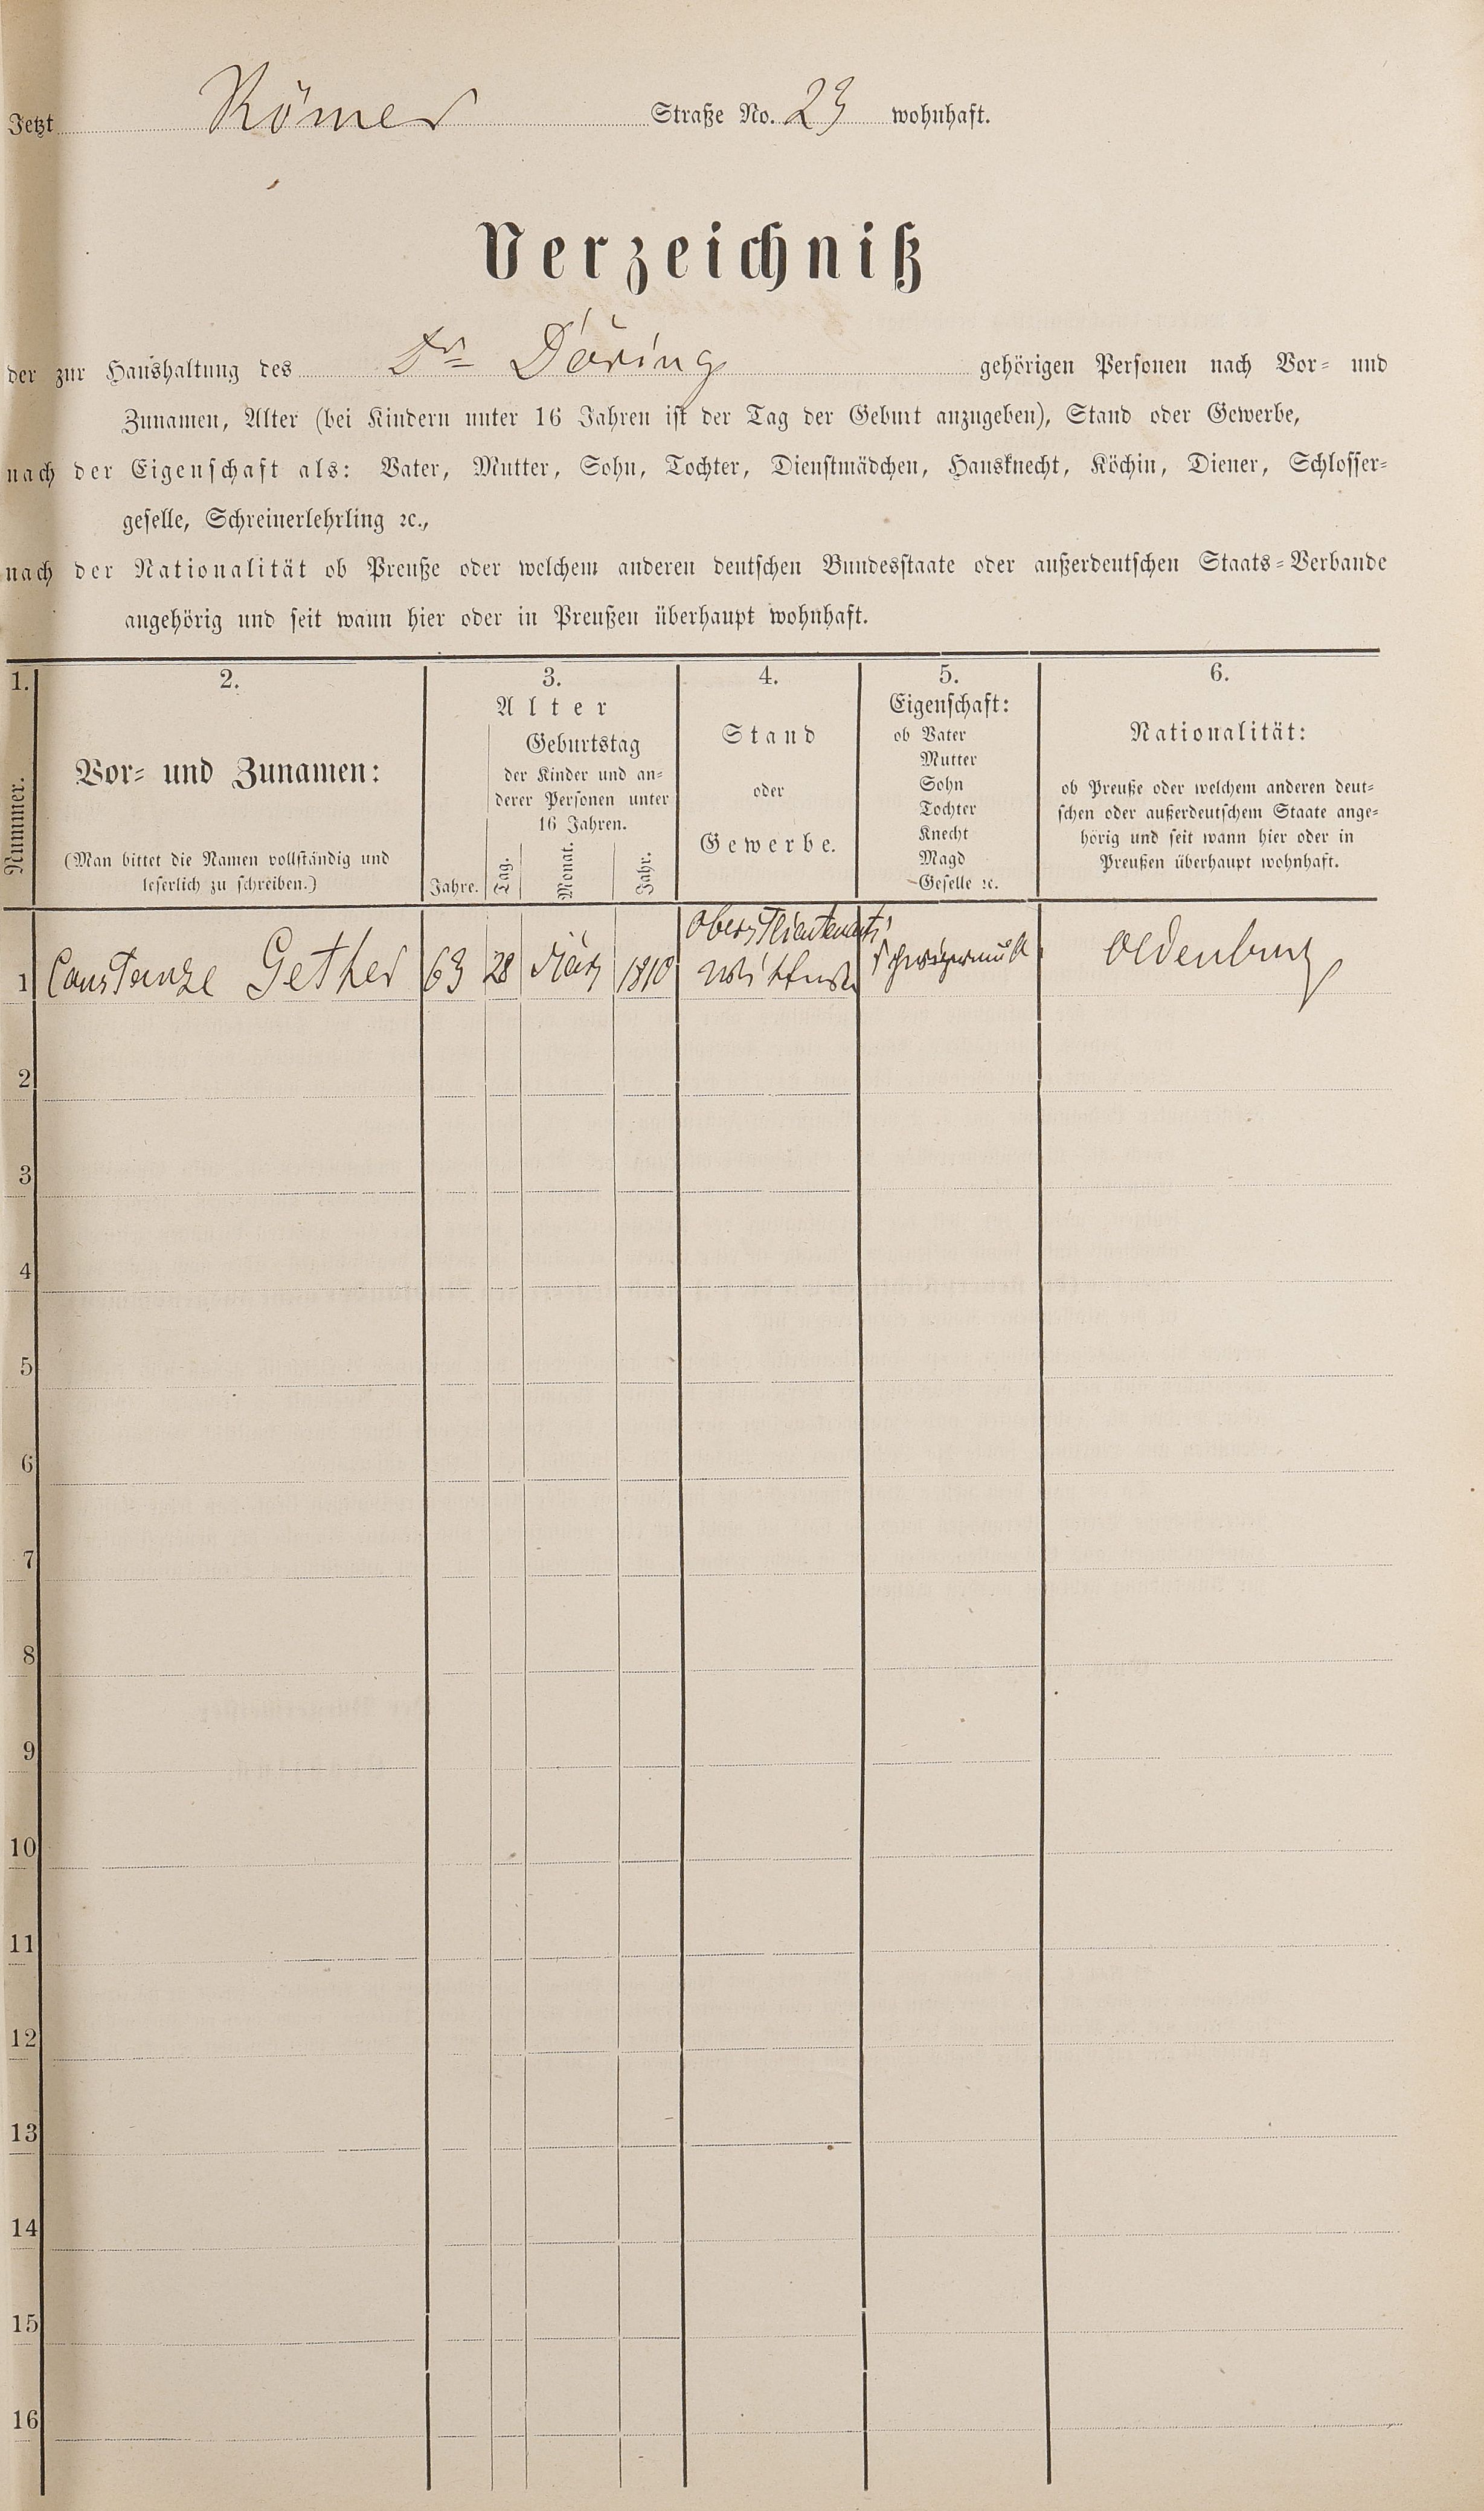 Jetzt Römer Straße No. 23 wohnhaft.
Verzeichniß
der zur Haushaltung des Dr Döring gehörigen Personen nach Vor- und
Zunamen, Alter (bei Kindern unter 16 Jahren ist der Tag der Geburt anzugeben), Stand oder Gewerbe,
nach der Eigenschaft als: Vater, Mutter, Sohn, Tochter, Dienstmädchen, Hausknecht, Köchin, Diener, Schlosser-
geselle, Schreinerlehrling ꝛc.,
nach der Nationalität ob Preuße oder welchem anderen deutschen Bundesstaate oder außerdeutschen Staats-Verbande
angehörig und seit wann hier oder in Preußen überhaupt wohnhaft.
1.
Nummer.
2.
Vor- und Zunamen:
(Man bittet die Namen vollständig und
leserlich zu schreiben.)
3.
Alter
Geburtstag
der Kinder und an-
derer Personen unter
16 Jahren.
Jahre. Tag. Monat. Jahr.
4.
Stand
oder
Gewerbe.
5.
Eigenschaft:
ob Vater
Mutter
Sohn
Tochter
Knecht
Magd
Geselle ꝛc.
6.
Nationalität:
ob Preuße oder welchem anderen deut-
schen oder außerdeutschem Staate ange-
hörig und seit wann hier oder in
Preußen überhaupt wohnhaft.
Oberstlieutenants
1 Constanze Gether 63 28 März 1810 Wittwe Oldenburg
2
3
4
5
6
7
8
9
10
11
12
13
14
15
16